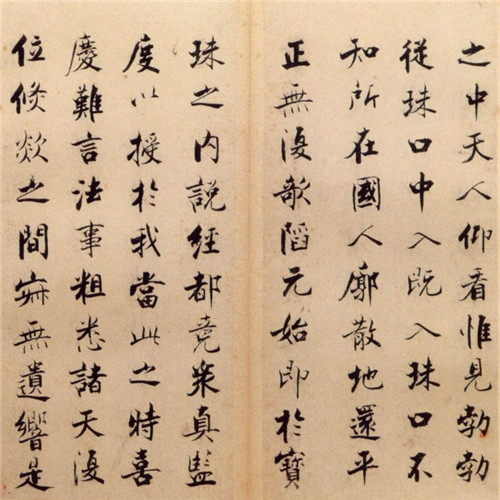 之中天人仰看惟見勃勃
從珠口中入既入珠口不
知所在國人廓散地還平
正無復欹陷元始即於寶
珠之内說經都竟衆真監
度以授於我當此之時喜
慶難言法事粗悉諸天復
位倐欻之間寂無遺響是